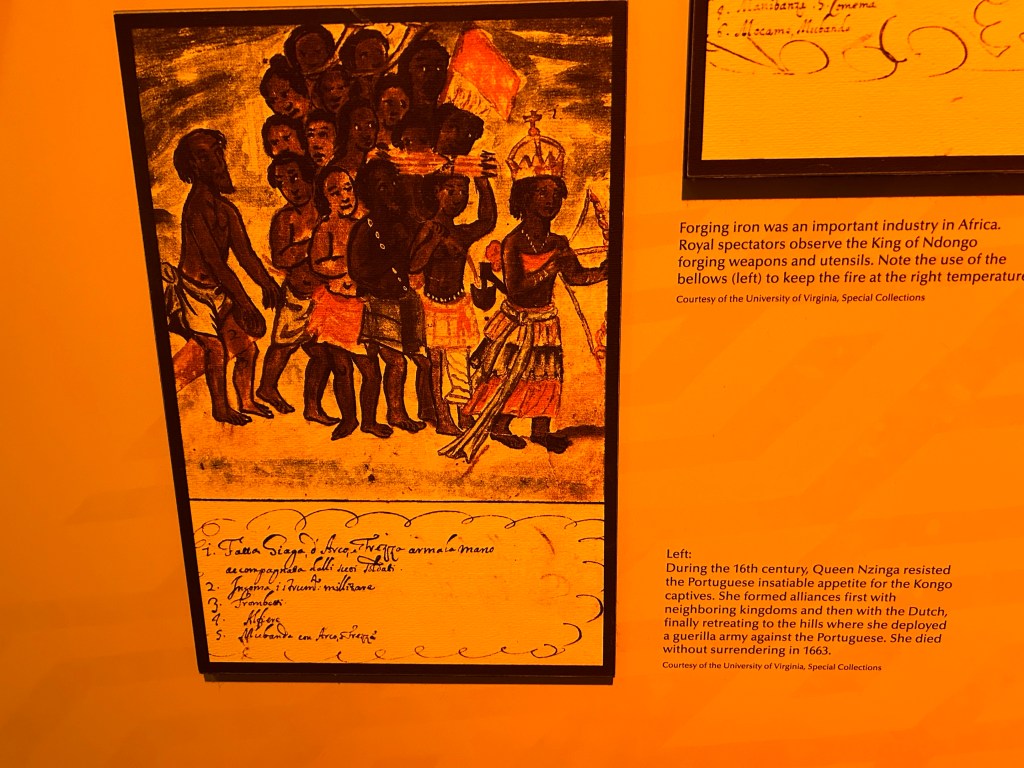 1. Fatta Giaga d'Arco, e Frezza armala mano
accompagnata dalli suoi Soldati.
2.
3. Trombetti
4. Alfiere
5. Mubanda con Arco, e Frezza
Forging iron was an important industry in Africa.
Royal spectators observe the King of Ndongo
forging weapons and utensils. Note the use of the
bellows (left) to keep the fire at the right temperature
Courtesy of the University of Virginia, Special Collections
Left:
During the 16th century, Queen Nzinga resisted
the Portuguese insatiable appetite for the Kongo
captives. She formed alliances first with
neighboring kingdoms and then with the Dutch,
finally retreating to the hills where she deployed
a guerilla army against the Portuguese. She died
without surrendering in 1663.
Courtesy of the University of Virginia, Special Collections